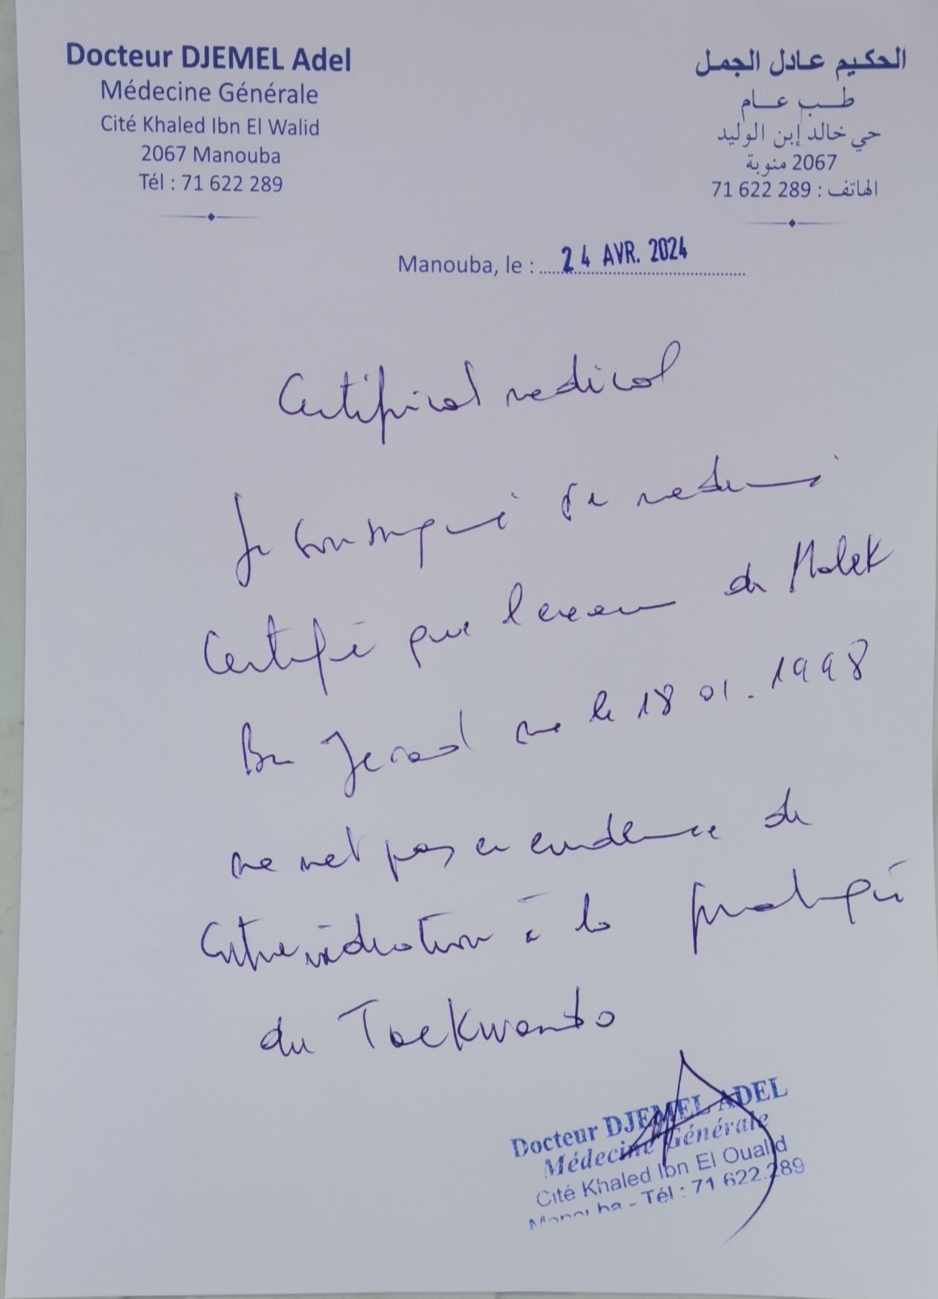 Docteur DJEMEL Adel
Médecine Générale
Cité Khaled Ibn El Walid
2067 Manouba
Tél : 71 622 289
الحكيم عادل الجمل
طب عام
حي خالد إبن الوليد
2067 منوبة
الهاتف : 289 622 71
Manouba, le : 24 AVR. 2024
Certificat medical
Je soussigné Dr
Certifie que l'examen de Malek
Ben Jerad né le 18 01. 1998
ne met pas en evidence de
Contre indication à la pratique
du Taekwondo
Docteur DJEMEL ADEL
Médecine Générale
Cité Khaled Ibn El Oualid
Manouba - Tél : 71 622.289